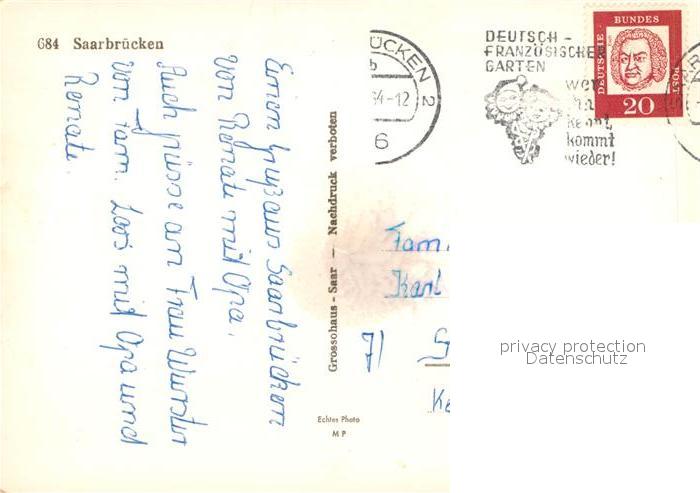 684 Saarbrücken
Einen Gruß aus Saarbrücken
von Renate mit Opa.
Auch Grüsse an Frau Wurster
von Fam. Loos mit Opa und
Renate.
Grossohaus - Saar — Nachdruck verboten
Echtes Photo
M P
ÜCKEN 2
b
64-12
6
DEUTSCH-
FRANZÖSISCHER
GARTEN
wer
ihn
kennt,
kommt
wieder!
DEUTSCHE
BUNDES
POST
20
Fam
Karl
71
privacy protection
Datenschutz